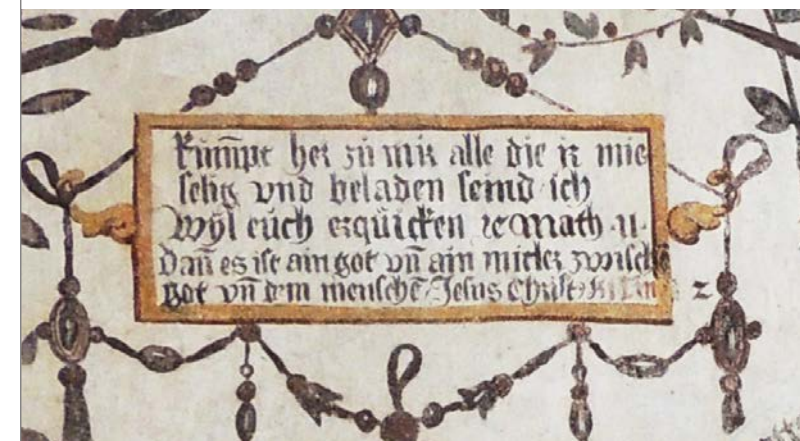 kumpt her zu mir alle die ir mie
selig vnd beladen seind ich
Wyl euch erquicken ꝛc Math ·11·
Dañ es ist ain got vñ ain mitler zwischē
got vñ dem menschē Jesus Christ⁹ 2